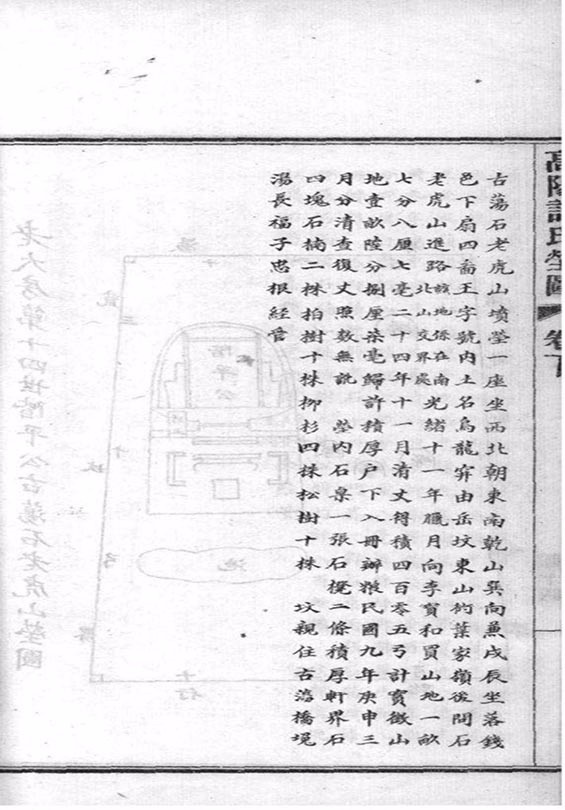 高陽許氏塋圖 卷下
古蕩石老虎山墳塋一座坐西北朝東南乾山巽向兼戌辰坐落錢
邑下扇四啚王字號内土名烏龍穽由岳坟東山衖葉家嶺後石
老虎山進路該地係在南北山交界處光緒十一年臘月向李寶和買山地一畝
七分八厘七毫二十四年十一月清丈得積四百零五弓計實徵山
地壹畝陸分捌厘柒毫歸許積厚户下入冊辦粮民國九年庚申三
月分清查復丈照數無訛 塋内石桌一張石櫈二條積厚軒界石
四塊石楠二株柏樹十株柳杉四株松樹十株 坟親住古蕩橋堍
湯長福子忠根經管